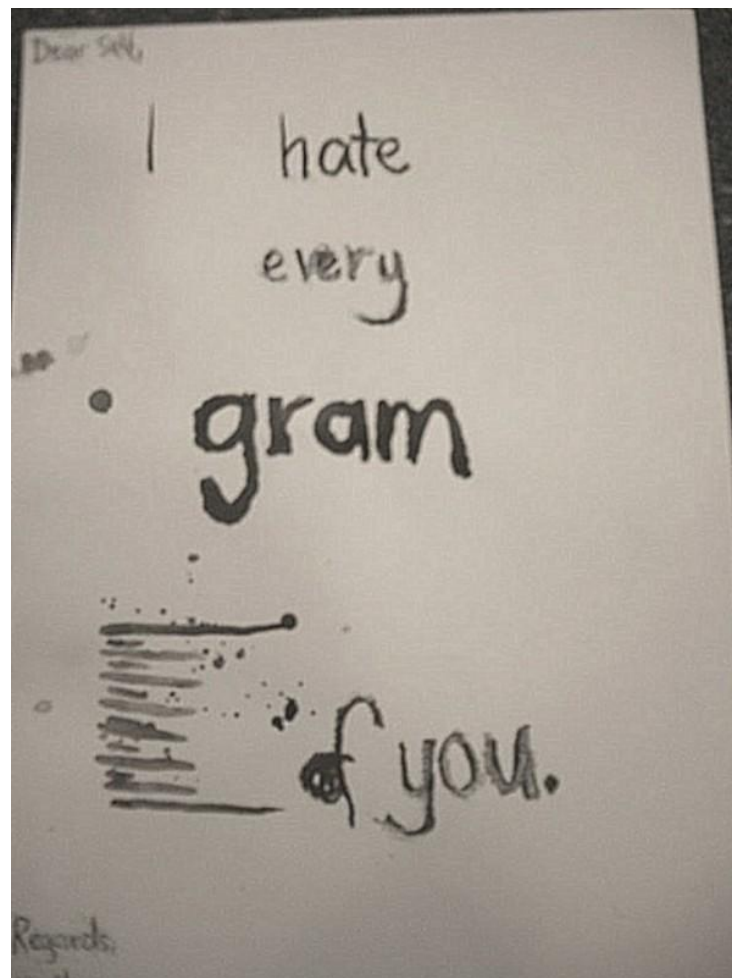 Dear Self,
I hate
every
gram
of you.
Regards,